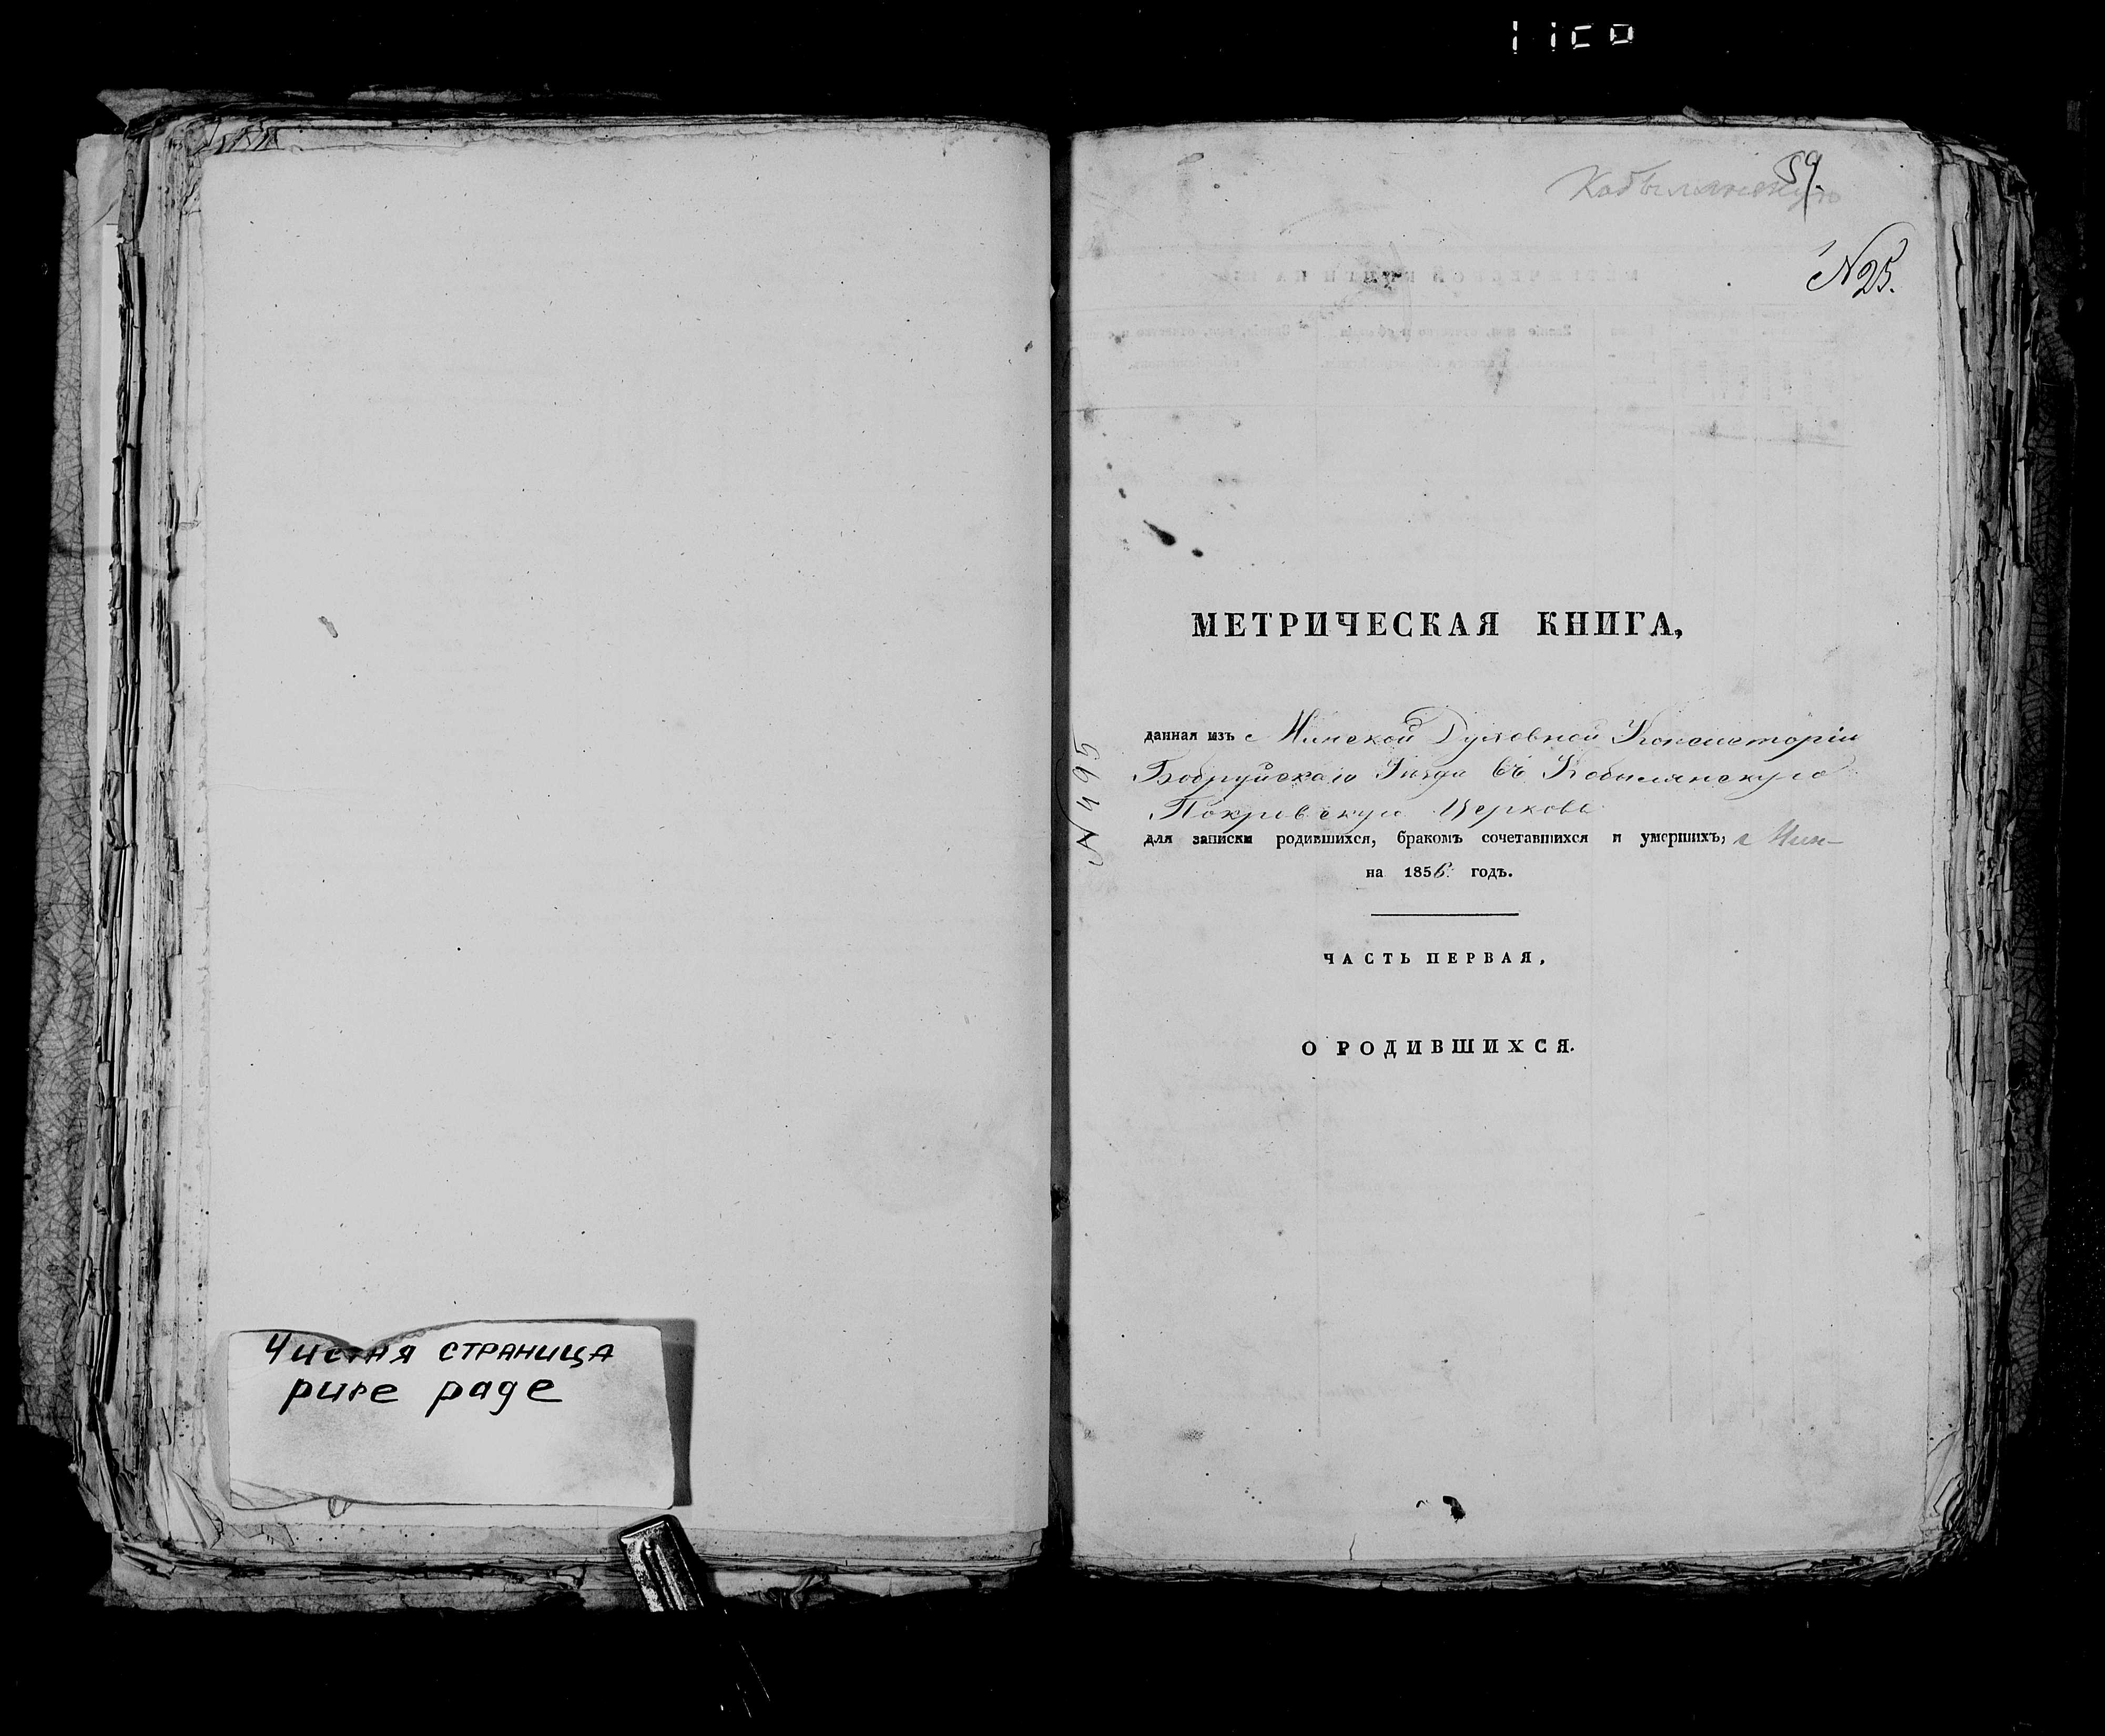 Чистая страница
pure page
Кобылянскую
59.
N 25.
МЕТРИЧЕСКАЯ КНИГА,
данная изъ Минской Духовной Консисторіи
Бобруйскаго Уѣзда въ Кобылянскую
Покровскую Церковь
для записки родившихся, бракомъ сочетавшихся и умершихъ,
на 1856. годъ.
ЧАСТЬ ПЕРВАЯ,
О РОДИВШИХСЯ.
N 495